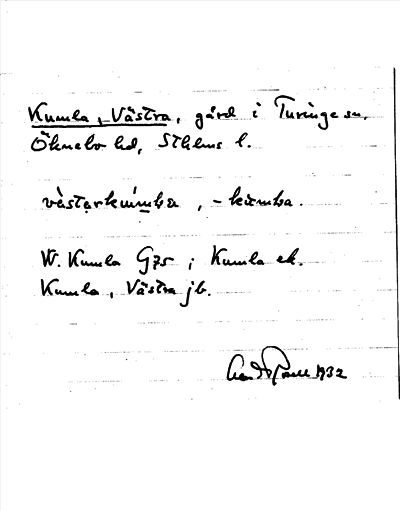 Kumla, Västra, gård i Turinge sn,
Öknebo hd, Sthlms l.
västarkumbla, -kumbla.
W. Kumla G75; Kumla ek.
Kumla, Västra jb.
1932